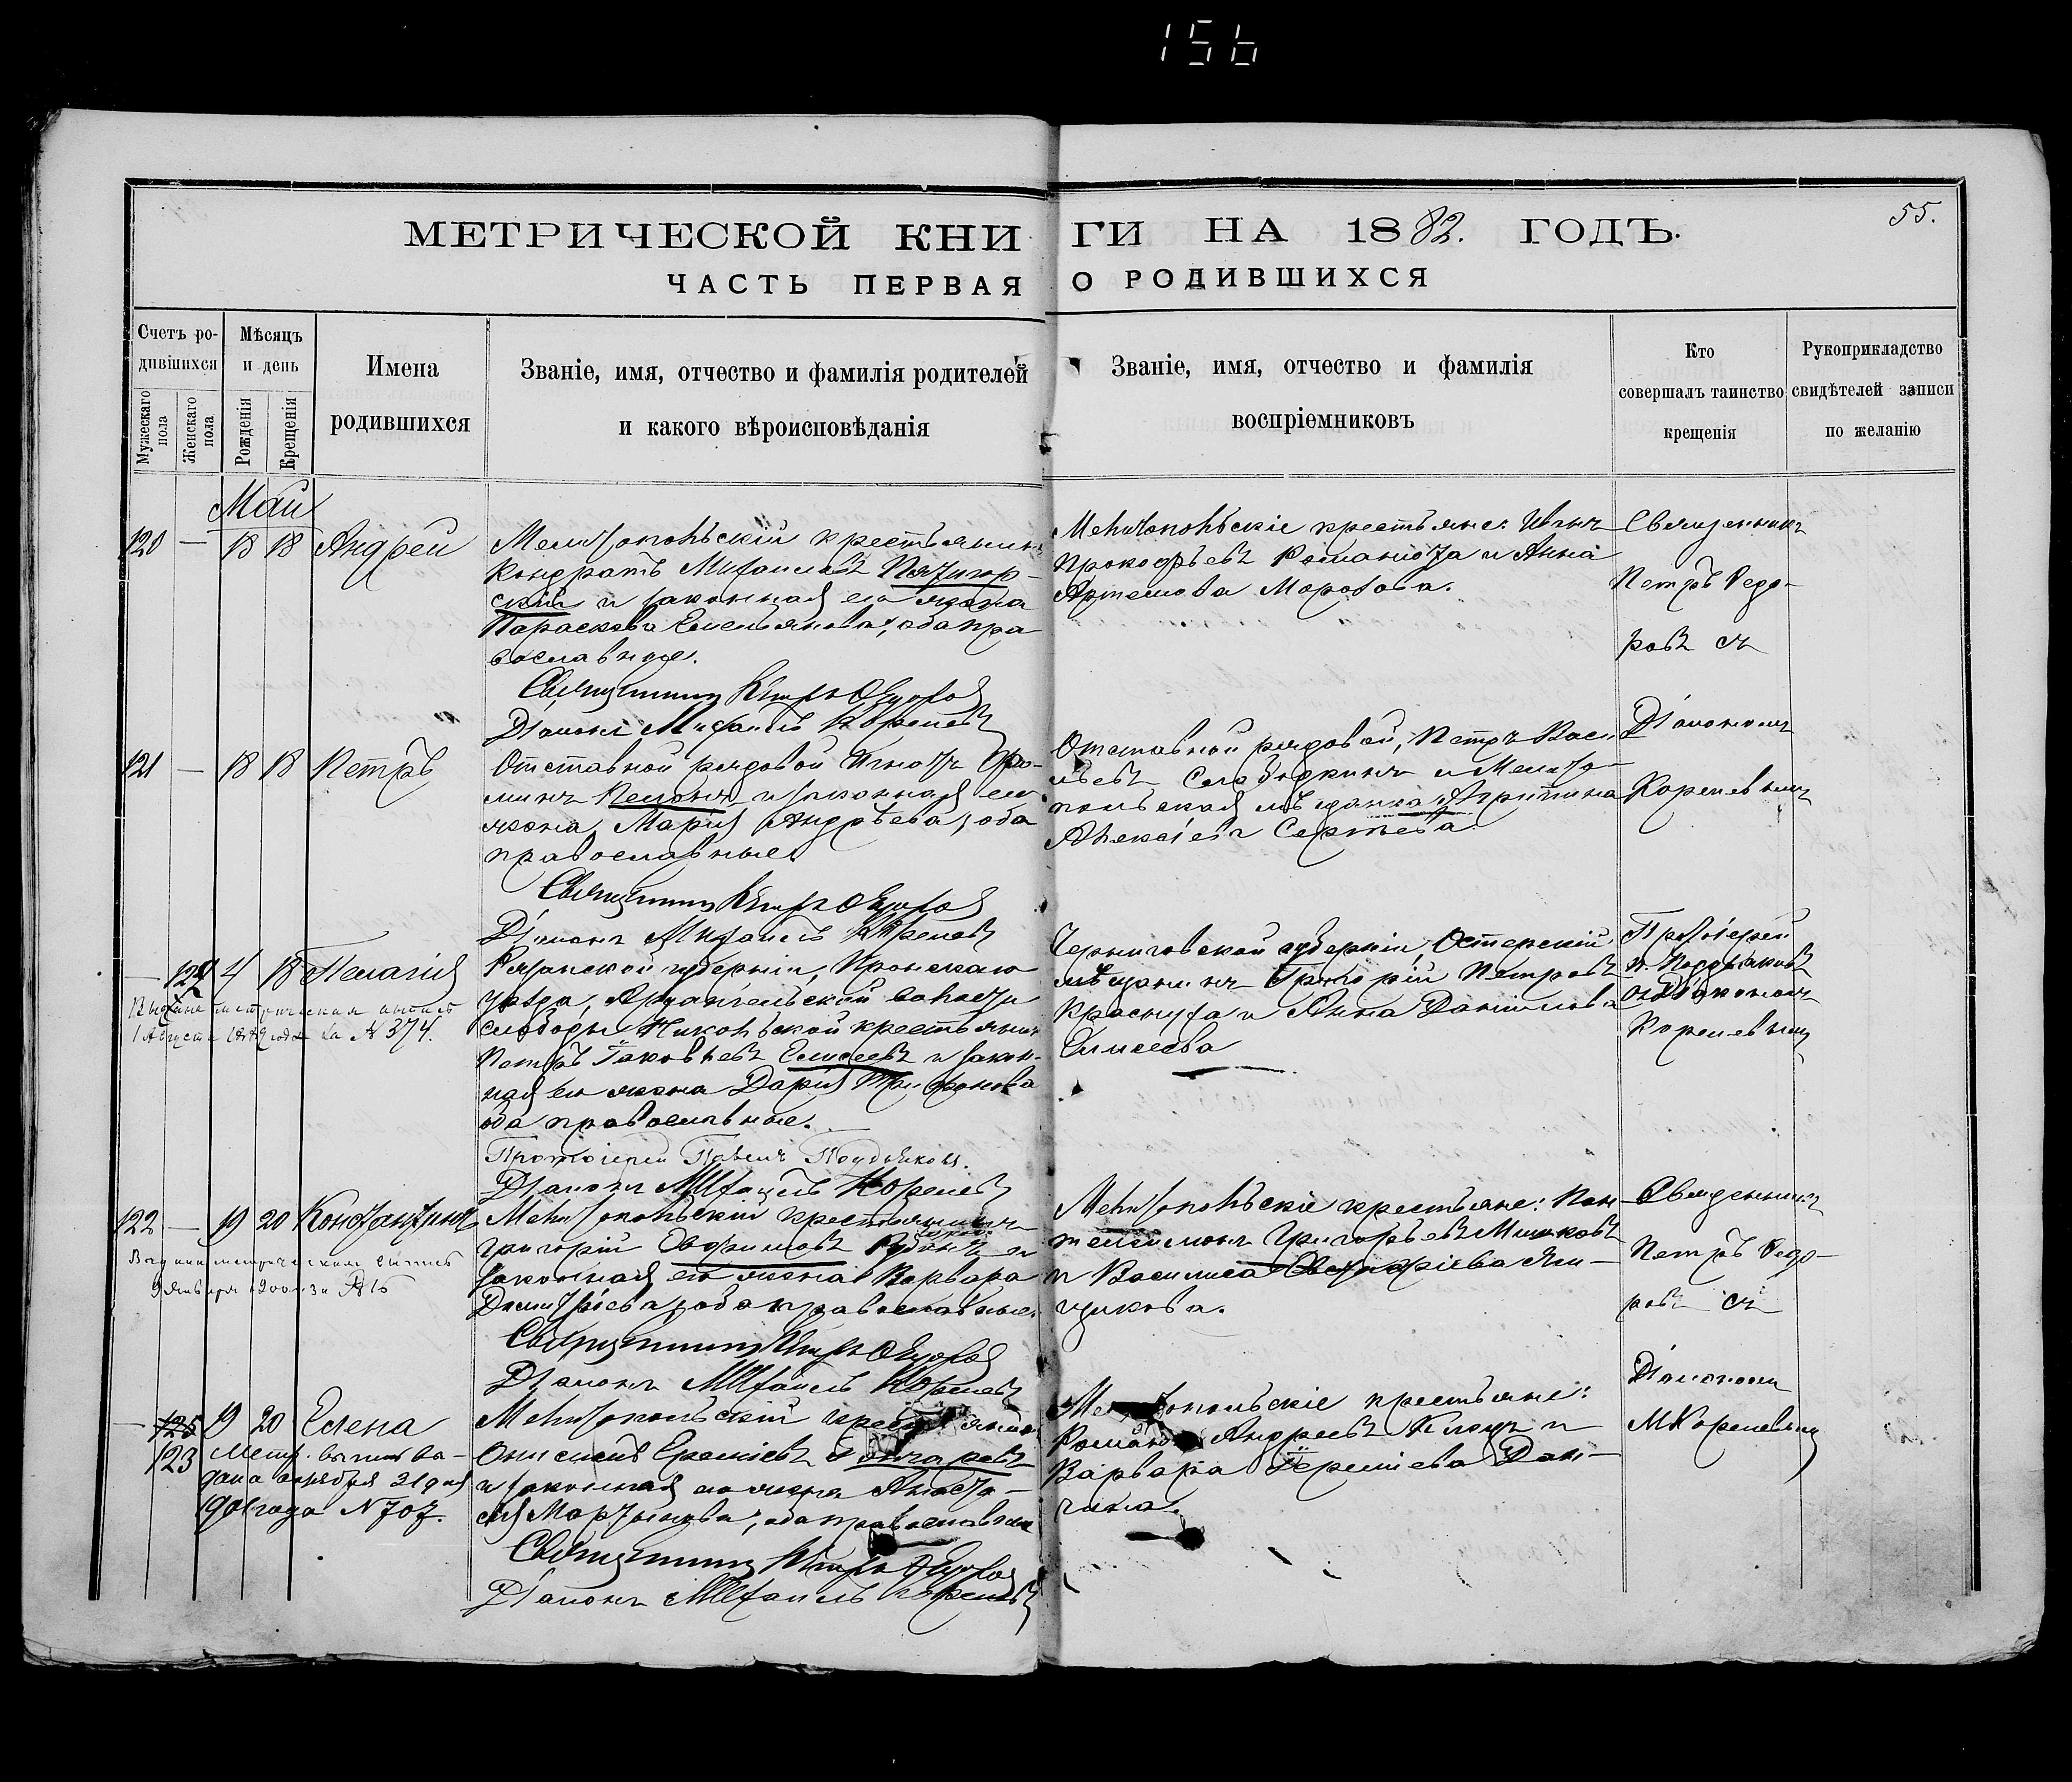 156
МЕТРИЧЕСКОЙ КНИГИ НА 1882. ГОДЪ.
55.
ЧАСТЬ ПЕРВАЯ О РОДИВШИХСЯ
Счетъ родившихся
Мужескаго пола
Женскаго пола
Мѣсяцъ и день
Рожденія
Крещенія
Имена
родившихся
Званіе, имя, отчество и фамилія родителей
и какого вѣроисповѣданія
Званіе, имя, отчество и фамилія
воспріемниковъ
Кто
совершалъ таинство
крещенія
Рукоприкладство
свидѣтелей записи
по желанію
Май
120 — 18 18 Андрей
Мелитопольскій крестьянинъ
Кондратъ Михаиловъ Пятигор-
скій и законная его жена
Параскева Емельянова, оба пра
вославные.
Священникъ Петръ Ѳедоровъ
Діаконъ Михаилъ Кореневъ
Мелитопольскіе крестьяне:
Прокофьевъ и Анна
Артемова Морозова.
Священникъ
Петръ Ѳедо-
ровъ съ
Діакономъ
Кореневымъ
121 — 18 18 Петръ
Отставной рядовой
и законная его
жена Марія Андрѣева, оба
православные
Священникъ Петръ Ѳедоровъ
Діаконъ Михаилъ Кореневъ
Отставной рядовой, Петръ Васи
льевъ и Мелито-
польская мѣщанка Агрипина
Алексіева Сергѣева
— 4 18 Пелагія
Выдана метрическая выпись
1 Августа года за № 374.
Рязанской губерніи, Пронскаго
уѣзда, Архангельской волости
слободы Никольской крестьянинъ
Петръ Іаковлевъ Елисеевъ и закон-
ная его жена Дарія Трифонова
оба православные.
Протоіерей Павелъ Поддьяковъ.
Діаконъ Михаилъ Кореневъ
Черниговской губерніи, Остерскій
мѣщанинъ Григорій Петровъ
Красуха и Анна Даніилова
Елисеева
Протоіерей
П. Поддьяковъ
съ Діакономъ
Кореневымъ
122 — 19 20 Константинъ
Выдана метрическая выпись
9 Января 1900 г. за № 16
Мелитопольскій крестьянинъ
Григорій Евфимовъ и
законная его жена Варвара
Димитріева, оба православные.
Священникъ Петръ Ѳедоровъ
Діаконъ Михаилъ Кореневъ
Мелитопольскіе крестьяне: Пан
телеимонъ Григорьевъ Мишковъ
и Василиса Ями-
щикова.
Священникъ
Петръ Ѳедо-
ровъ съ
Діакономъ
М Кореневымъ
— 125 19 20 Елена
123 Метр. выпись вы-
дана октября 21 дня
1901 года № 707.
Мелитопольскій крестьянинъ
Онисимъ Еремѣевъ Гончаровъ
и законная его жена Анаста-
сія Мартынова, оба православные
Священникъ Петръ Ѳедоровъ
Діаконъ Михаилъ Кореневъ
Мелитопольскіе крестьяне:
Романъ Андреевъ Клоцъ и
Варвара Іереміева Дан-
чина.